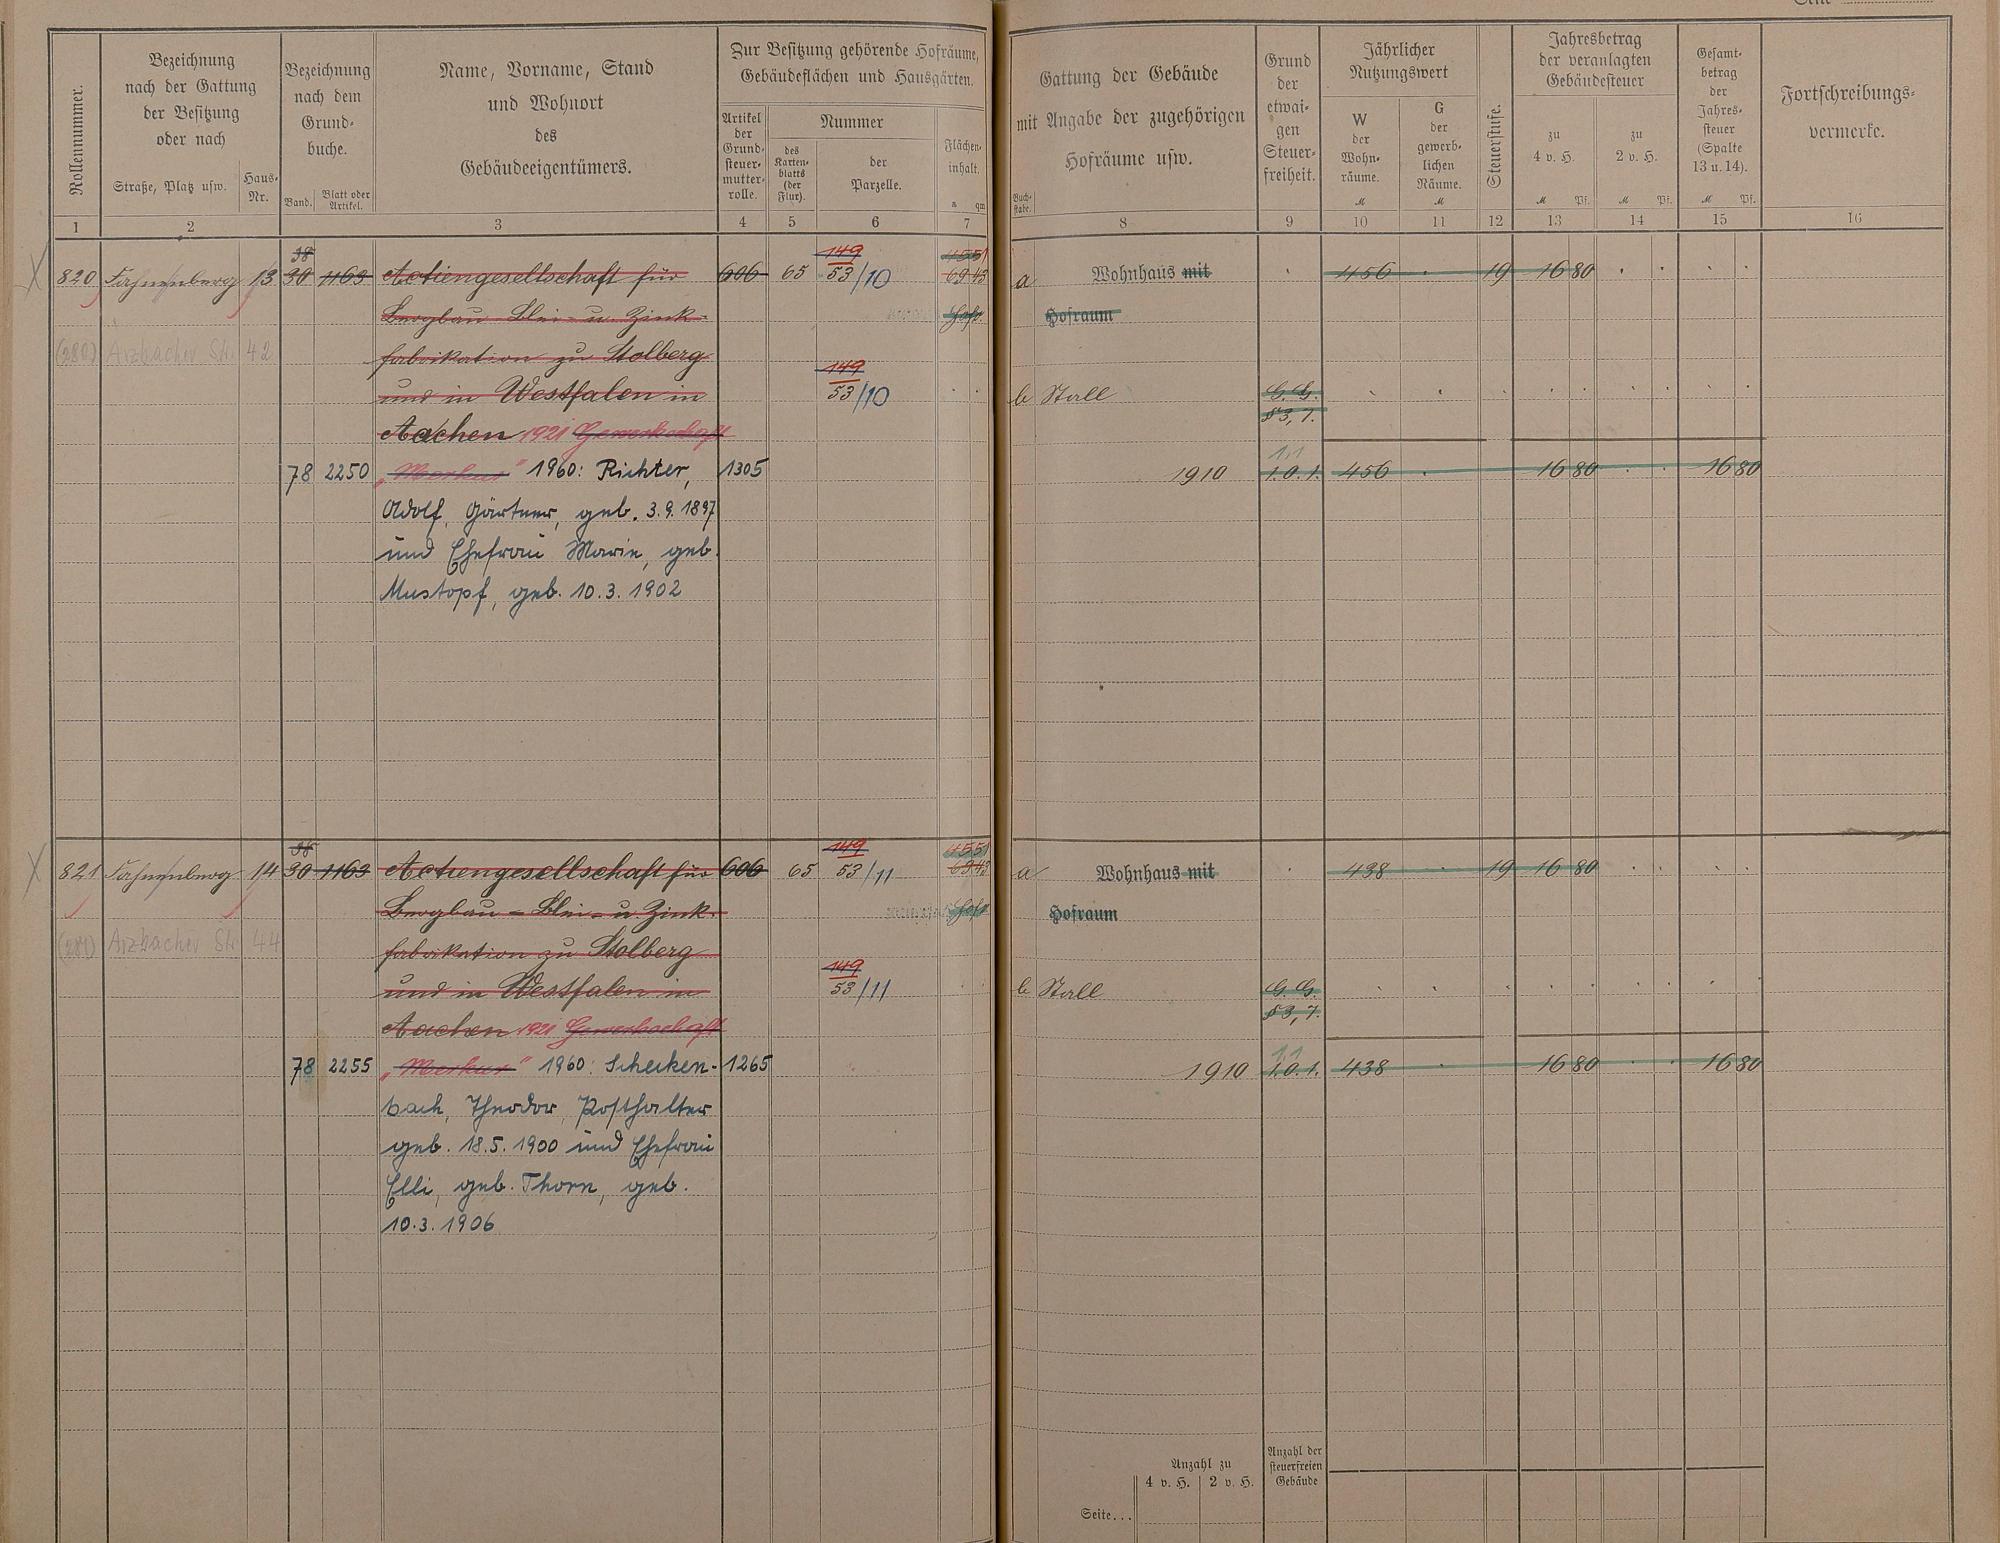 Seite
Rollennummer.
Bezeichnung
nach der Gattung
der Besitzung
oder nach
Straße, Platz usw.
Haus-
Nr.
Bezeichnung
nach dem
Grund-
buche.
Band.
Blatt oder
Artikel.
Name, Vorname, Stand
und Wohnort
des
Gebäudeeigentümers.
Zur Besitzung gehörende Hofräume,
Gebäudeflächen und Hausgärten.
Artikel
der
Grund-
steuer-
mutter-
rolle.
Nummer
des
Karten-
blatts
(der
Flur).
der
Parzelle.
Flächen-
inhalt.
a qm
Buch-
stabe.
Gattung der Gebäude
mit Angabe der zugehörigen
Hofräume usw.
Grund
der
etwai-
gen
Steuer-
freiheit.
Jährlicher
Nutzungswert
W
der
Wohn-
räume.
M
G
der
gewerb-
lichen
Räume.
M
Steuerstufe.
Jahresbetrag
der veranlagten
Gebäudesteuer
zu
4 v. H.
M Pf.
zu
2 v. H.
M Pf.
Gesamt-
betrag
der
Jahres-
steuer
(Spalte
13 u. 14).
M Pf.
Fortschreibungs-
vermerke.
1 2 3 4 5 6 7 8 9 10 11 12 13 14 15 16
38 149
820 Fahnenberg 13 30 1163 Actiengesellschaft für 606 65 53/10 69 43 a Wohnhaus mit 456 19 16 80
Bergbau- Blei- u. Zink- Hofr. Hofraum
(280) Arzbacher Str. 42 fabrikation zu Stolberg
149
und in Westfalen in 53/10 b Stall G. G.
§ 3, 7.
Aachen 1921 Gewerkschaft
1.1
78 2250 "Merkur" 1960: Richter, 1305 1910 1.0.1. 456 16 80 16 80
Adolf, Gärtner, geb. 3.9.1897
und Ehefrau Marie, geb.
Mustopf, geb. 10.3.1902
38 149 45 51
821 Fahnenberg 14 30 1163 Actiengesellschaft für 606 65 53/11 69 43 a Wohnhaus mit 438 19 16 80
Bergbau- Blei- u. Zink- Hofr. Hofraum
(281) Arzbacher Str. 44 fabrikation zu Stolberg
149
und in Westfalen in 53/11 b Stall G. G.
§ 3, 7.
Aachen 1921 Gewerkschaft
1.1
78 2255 "Merkur" 1960: Schecken- 1265 1910 1.0.1. 438 16 80 16 80
bach, Theodor, Posthalter
geb. 18.5.1900 und Ehefrau
Elli, geb. Thorn, geb.
10.3.1906
Anzahl zu
4 v. H. 2 v. H.
Anzahl der
steuerfreien
Gebäude
Seite...